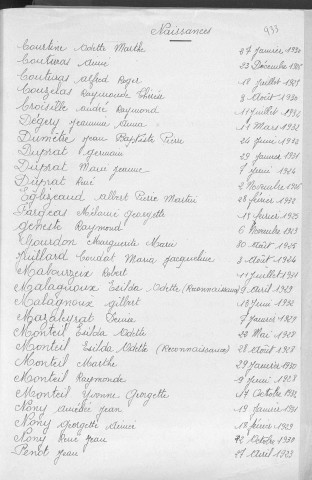 Naissances
933
Courtine Odette Marthe 27 Janvier 1930
Couturas Anne 23 Décembre
Couturas Alfred Roger 18 Juillet 1921
Couzelas Raymonde 8 Août 1930
Croisille André Raymond 11 Juillet
Dégery Jeannine Anna 11 Mars 1932
Dumètre Jean Baptiste Pierre 24 Juin
Duprat Germain 29 Janvier 1921
Duprat Marie Jeanne 7 Juin 1924
Duprat René 2 Novembre
Eglizeaud Albert Pierre Martin 28 février
Fargeas Mélanie Georgette 15 février 1925
Geneste Raymond 6 Novembre 1923
Marguerite Marie 30 Août
Juillard Coudat Maria Jacqueline 3 Août 1924
Mabourzeix Robert 11 Juillet
Malagnoux Esilda Odette (Reconnaissance) 9 Avril 1929
Malagnoux Gilbert 13 Juin
Mazahyrat 7 Janvier 1929
Monteil Esilda Odette 20 Mai 1928
Monteil Esilda Odette (Reconnaissance) 28 Août 1928
Monteil Marthe 29 Janvier 1930
Monteil Raymonde 9 Juin 1928
Monteil Yvonne Georgette 17 Octobre
Nony Amélie Jean 19 Janvier
Nony Georgette Aimée 18 février 1929
Nony René Jean Octobre 1930
Penot Jean 27 Avril 1923